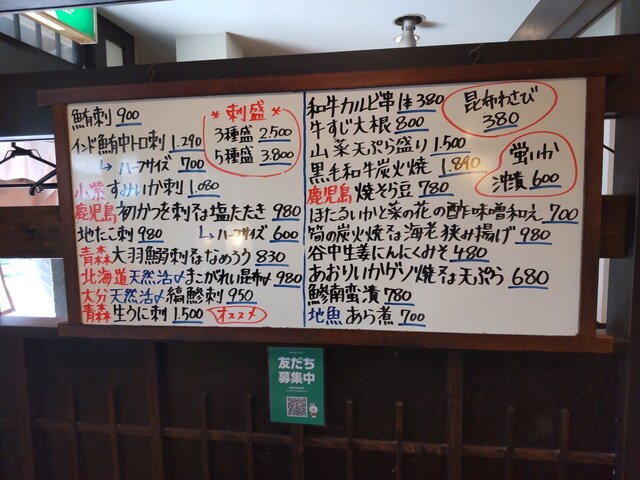 鮪刺 900
インド鮪中トロ刺 1.290
↳ ハーフサイズ 700
小柴 すみいか刺 1.080
鹿児島 初かつを刺又は塩たたき 980
地たこ刺 980 ↳ ハーフサイズ 600
青森 大羽鰯刺又はなめろう 830
北海道 天然活〆まこがれい昆布〆 980
大分 天然活〆縞鯵刺 950
青森 生うに刺 1.500 オススメ
* 刺盛 *
3種盛 2.500
5種盛 3.800
和牛カルビ串 1本 380
牛すじ大根 800
山菜天ぷら盛り 1.500
黒毛和牛炭火焼 1.890
鹿児島 焼そら豆 780
ほたるいかと菜の花の酢味噌和え 700
筍の炭火焼又は海老挟み揚げ 980
谷中生姜にんにくみそ 480
あおりいかゲソ焼又は天ぷら 680
鯵南蛮漬 780
地魚 あら煮 700
昆布わさび
380
蛍いか
沖漬 600
友だち
募集中